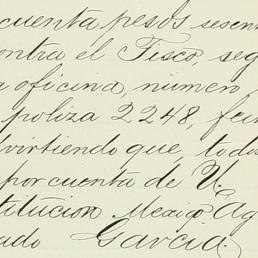 cuenta pesos sesen
contra el Fisco, seg
a oficina, numero
poliza 2248, fech
dvirtiendo que, todos
por cuenta de U.
titucion. Mexico Ag
ado Garcia.